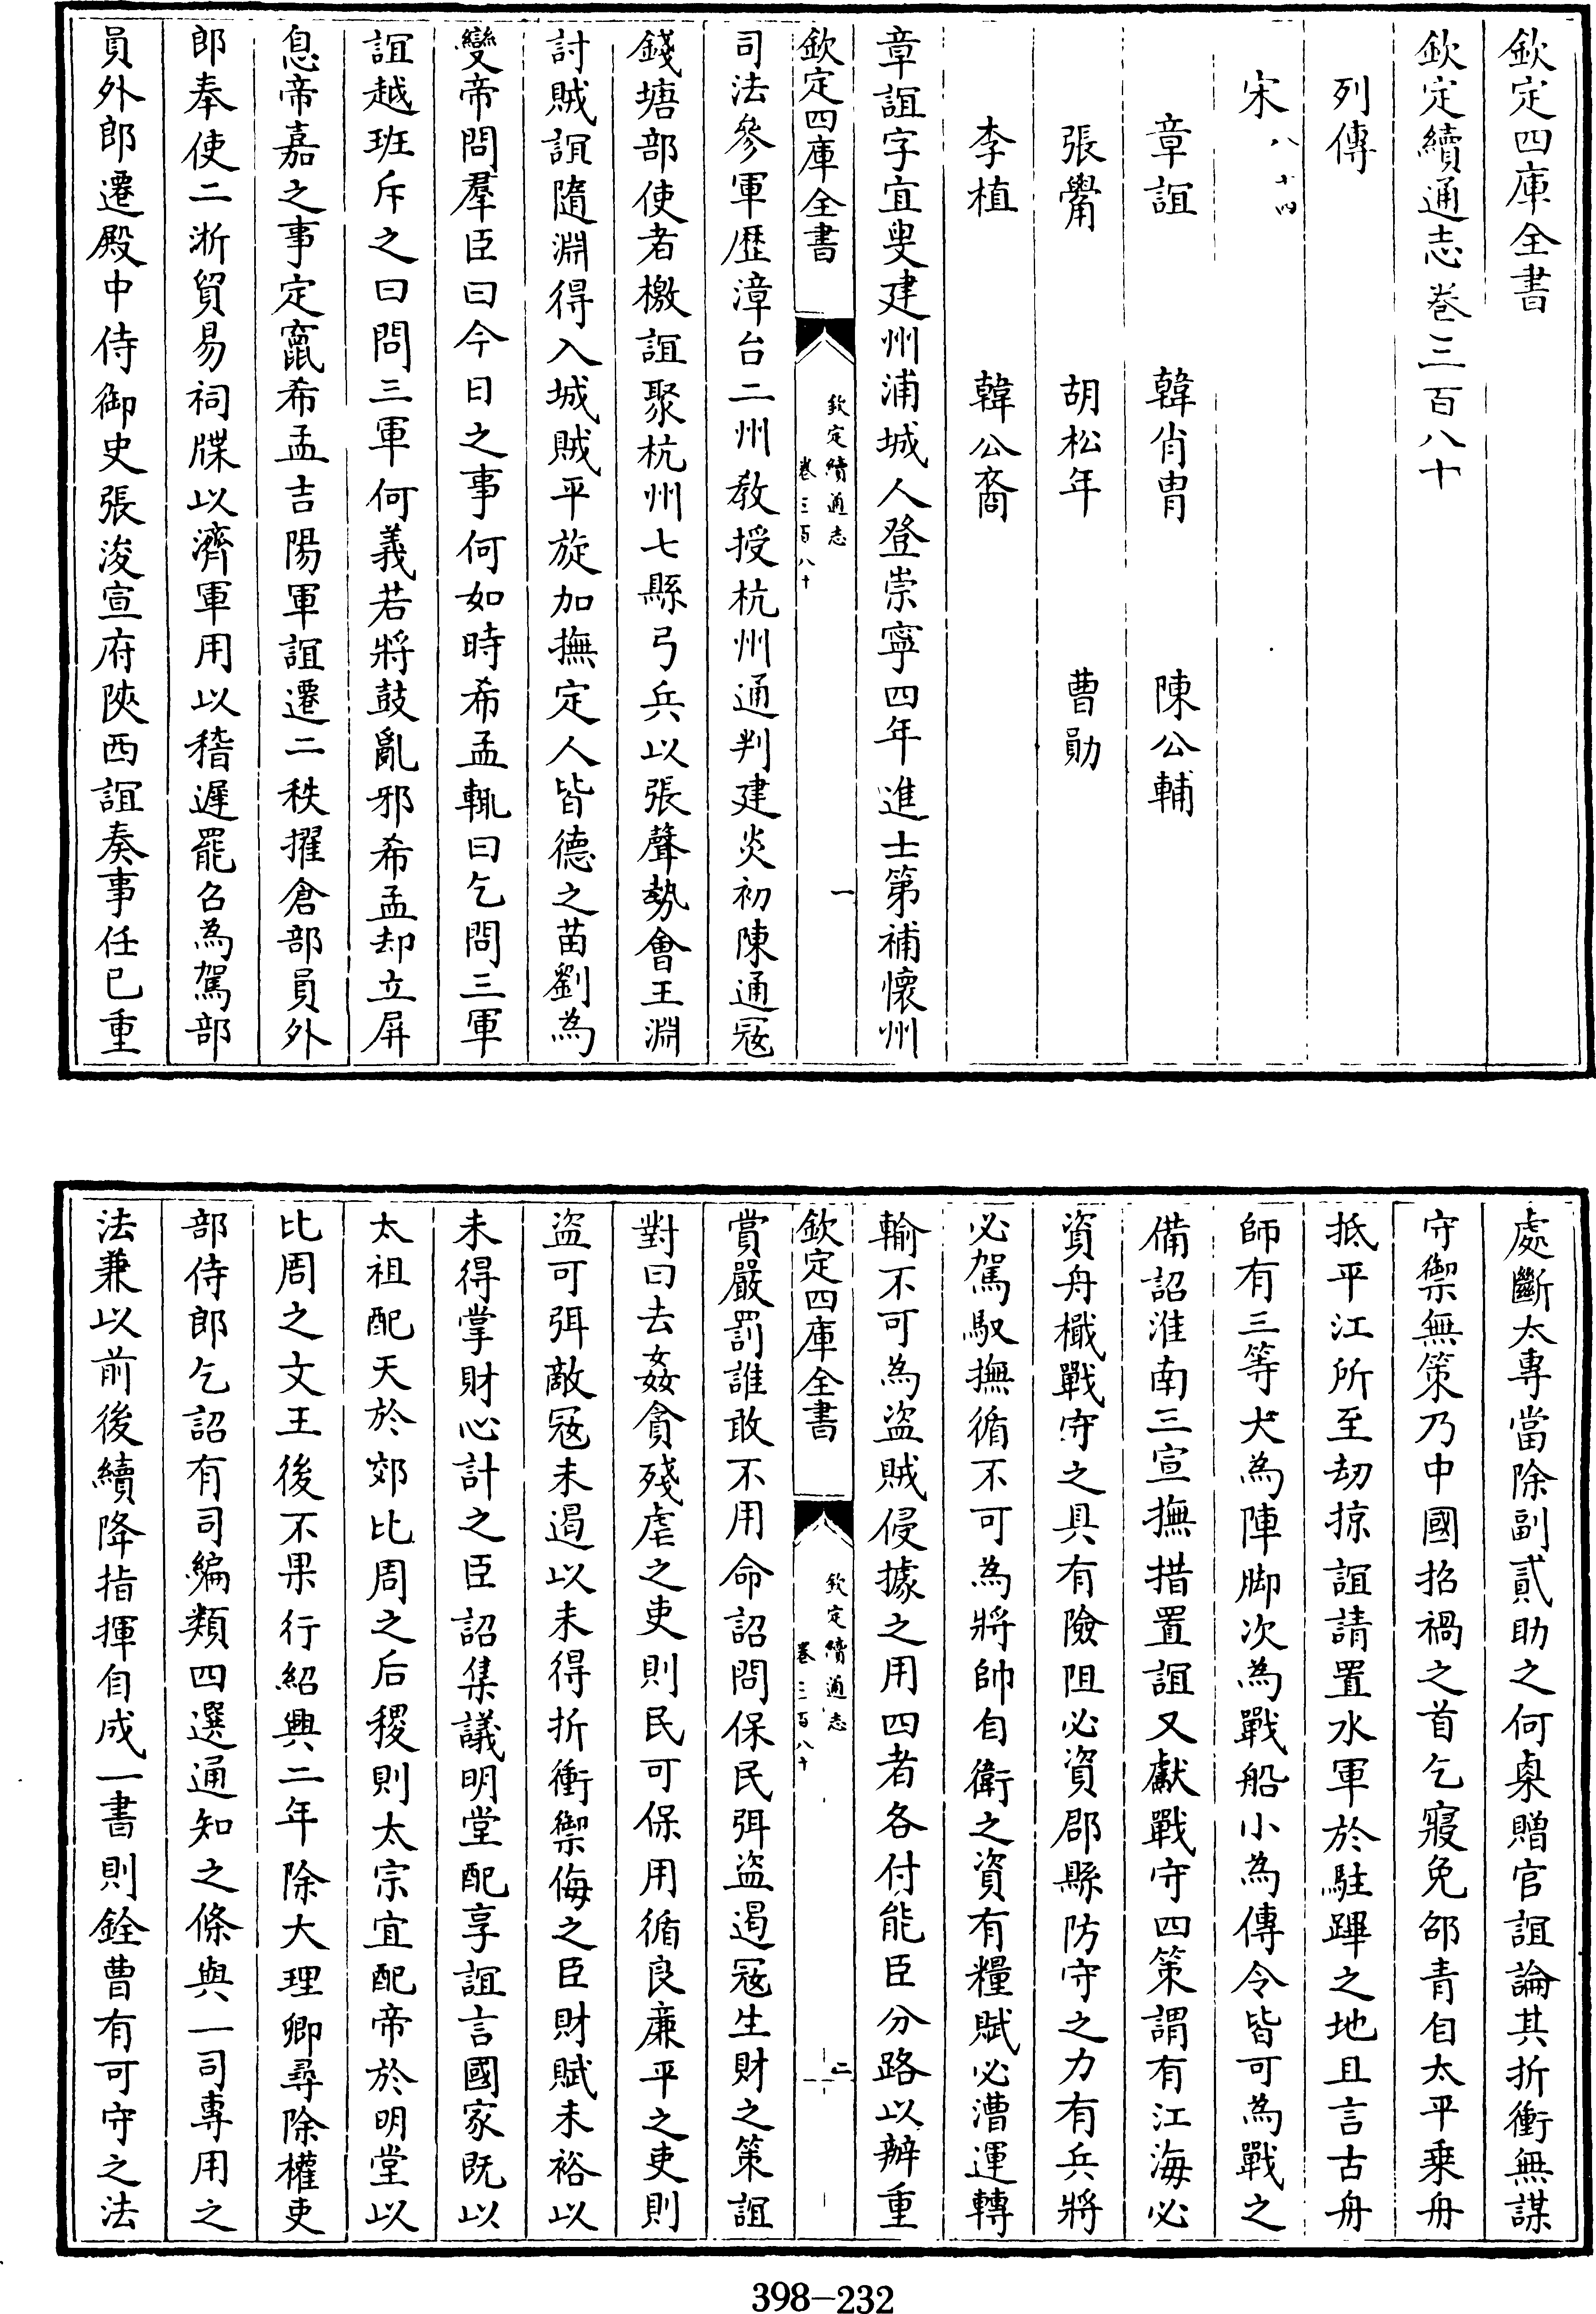 欽定四庫全書
欽定續通志卷三百八十
列傳
宋八十四
章誼 韓肖胄 陳公輔
張觷 胡松年 曹勛
李植 韓公裔
章誼字宜叟建州浦城人登崇寧四年進士第補懷州
欽定四庫全書 欽定續通志 卷三百八十 一
司法參軍歷漳台二州教授杭州通判建炎初陳通寇
錢塘部使者檄誼聚杭州七縣弓兵以張聲勢會王淵
討賊誼隨淵得入城賊平旋加撫定人皆德之苗劉為
變帝問羣臣曰今日之事何如時希孟輒曰乞問三軍
誼越班斥之曰問三軍何義若將鼓亂邪希孟却立屏
息帝嘉之事定竄希孟吉陽軍誼遷二秩擢倉部員外
郎奉使二浙貿易祠牒以濟軍用以稽遲罷召為駕部
員外郎遷殿中侍御史張浚宣府陜西誼奏事任已重
處斷太專當除副貳助之何㮚贈官誼論其折衝無謀
守禦無策乃中國招禍之首乞寢免邵青自太平乗舟
抵平江所至刼掠誼請置水軍於駐蹕之地且言古舟
師有三等大為陣脚次為戰船小為傳令皆可為戰之
備詔淮南三宣撫措置誼又獻戰守四策謂有江海必
資舟檝戰守之具有險阻必資郡縣防守之力有兵將
必駕馭撫循不可為將帥自衛之資有糧賦必漕運轉
輸不可為盜賊侵據之用四者各付能臣分路以辦重
欽定四庫全書 欽定續通志 卷三百八十 二
賞嚴罰誰敢不用命詔問保民弭盜遏寇生財之策誼
對曰去姦貪殘虐之吏則民可保用循良亷平之吏則
盜可弭敵寇未遏以未得折衝禦侮之臣財賦未裕以
未得掌財心計之臣詔集議明堂配享誼言國家既以
太祖配天於郊比周之后稷則太宗宜配帝於明堂以
比周之文王後不果行紹興二年除大理卿尋除權吏
部侍郎乞詔有司編類四選通知之條與一司專用之
法兼以前後續降指揮自成一書則銓曹有可守之法
398-232